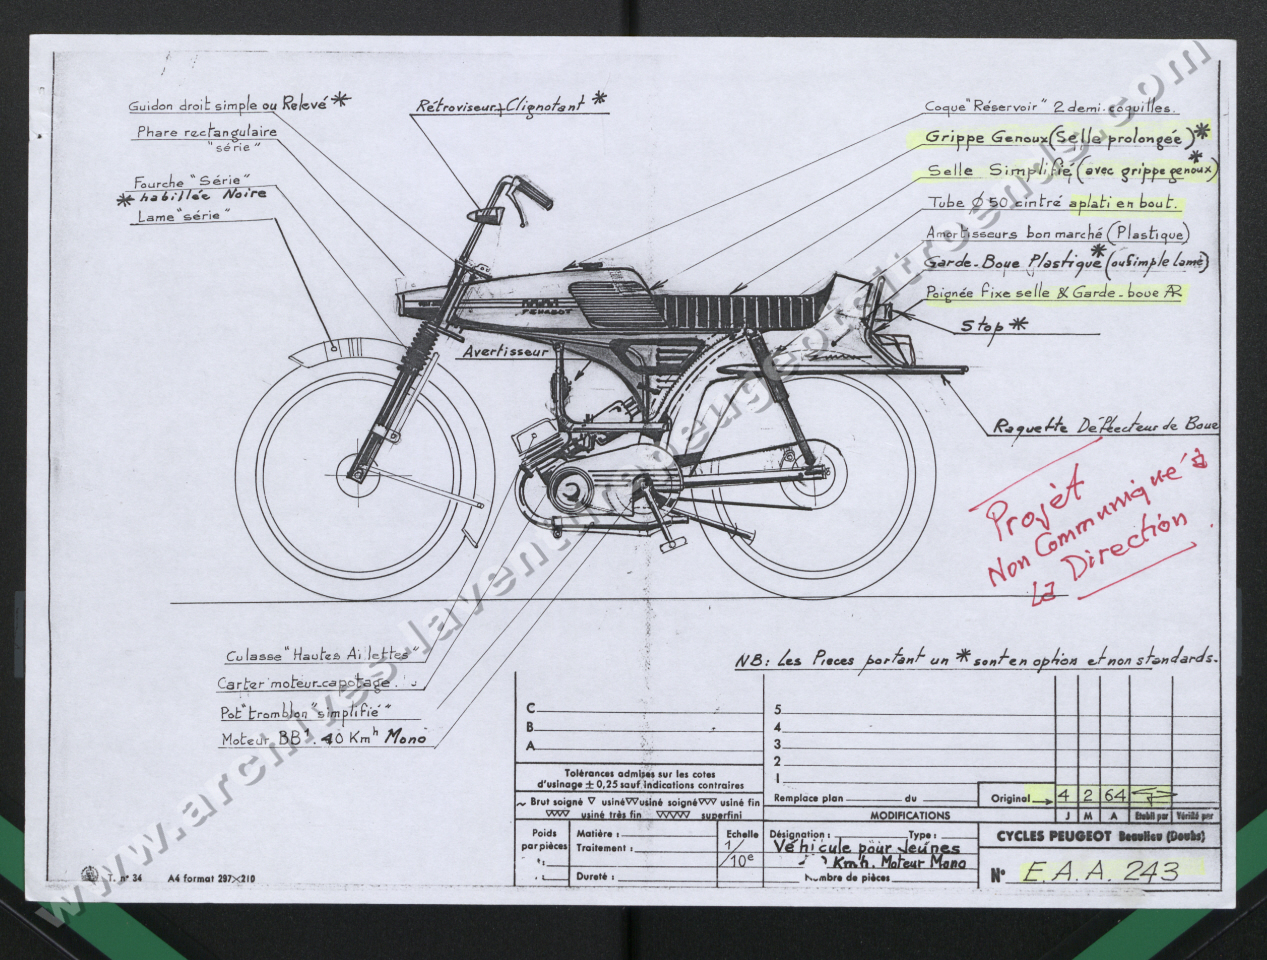 Guidon droit simple ou Relevé *
Phare rectangulaire
"série"
Fourche "Série"
* habillée Noire
Lame "série"
Rétroviseur + Clignotant *
Coque "Réservoir" 2 demi-coquilles.
Grippe Genoux (Selle prolongée) *
Selle Simplifié (avec grippe genoux) *
Tube Ø 50 cintré aplati en bout.
Amortisseurs bon marché (Plastique)
Garde-Boue Plastique * (ou simple lame)
Poignée fixe selle & Garde-boue AR
Stop *
Avertisseur
PEUGEOT
Raquette Déflecteur de Boue
Projet
Non Communiqué à
la Direction.
Culasse "Hautes Ailettes"
Carter moteur-capotage.
Pot "tromblon" simplifié"
Moteur BB1. 40 Kmh Mono
NB: Les Pieces portant un * sont en option et non standards.
C
B
A
5
4
3
2
1
Tolérances admises sur les cotes
d'usinage ± 0,25 sauf indications contraires
~ Brut soigné ▽ usiné ▽▽ usiné soigné ▽▽▽ usiné fin
▽▽▽▽ usiné très fin ▽▽▽▽ superfini
Remplace plan du
Original 4 2 64
J M A Etabli par Vérifié par
MODIFICATIONS
Poids
par pièces
Matière :
Traitement :
Dureté :
Echelle
1/10e
Désignation : Type :
Véhicule pour Jeunes
Km/h. Moteur Mono
Nombre de pièces
CYCLES PEUGEOT Beaulieu (Doubs)
N° E.A.A. 243
T. n° 34 A4 format 297×210
www.archives.laventurepeugeotcitroends.com